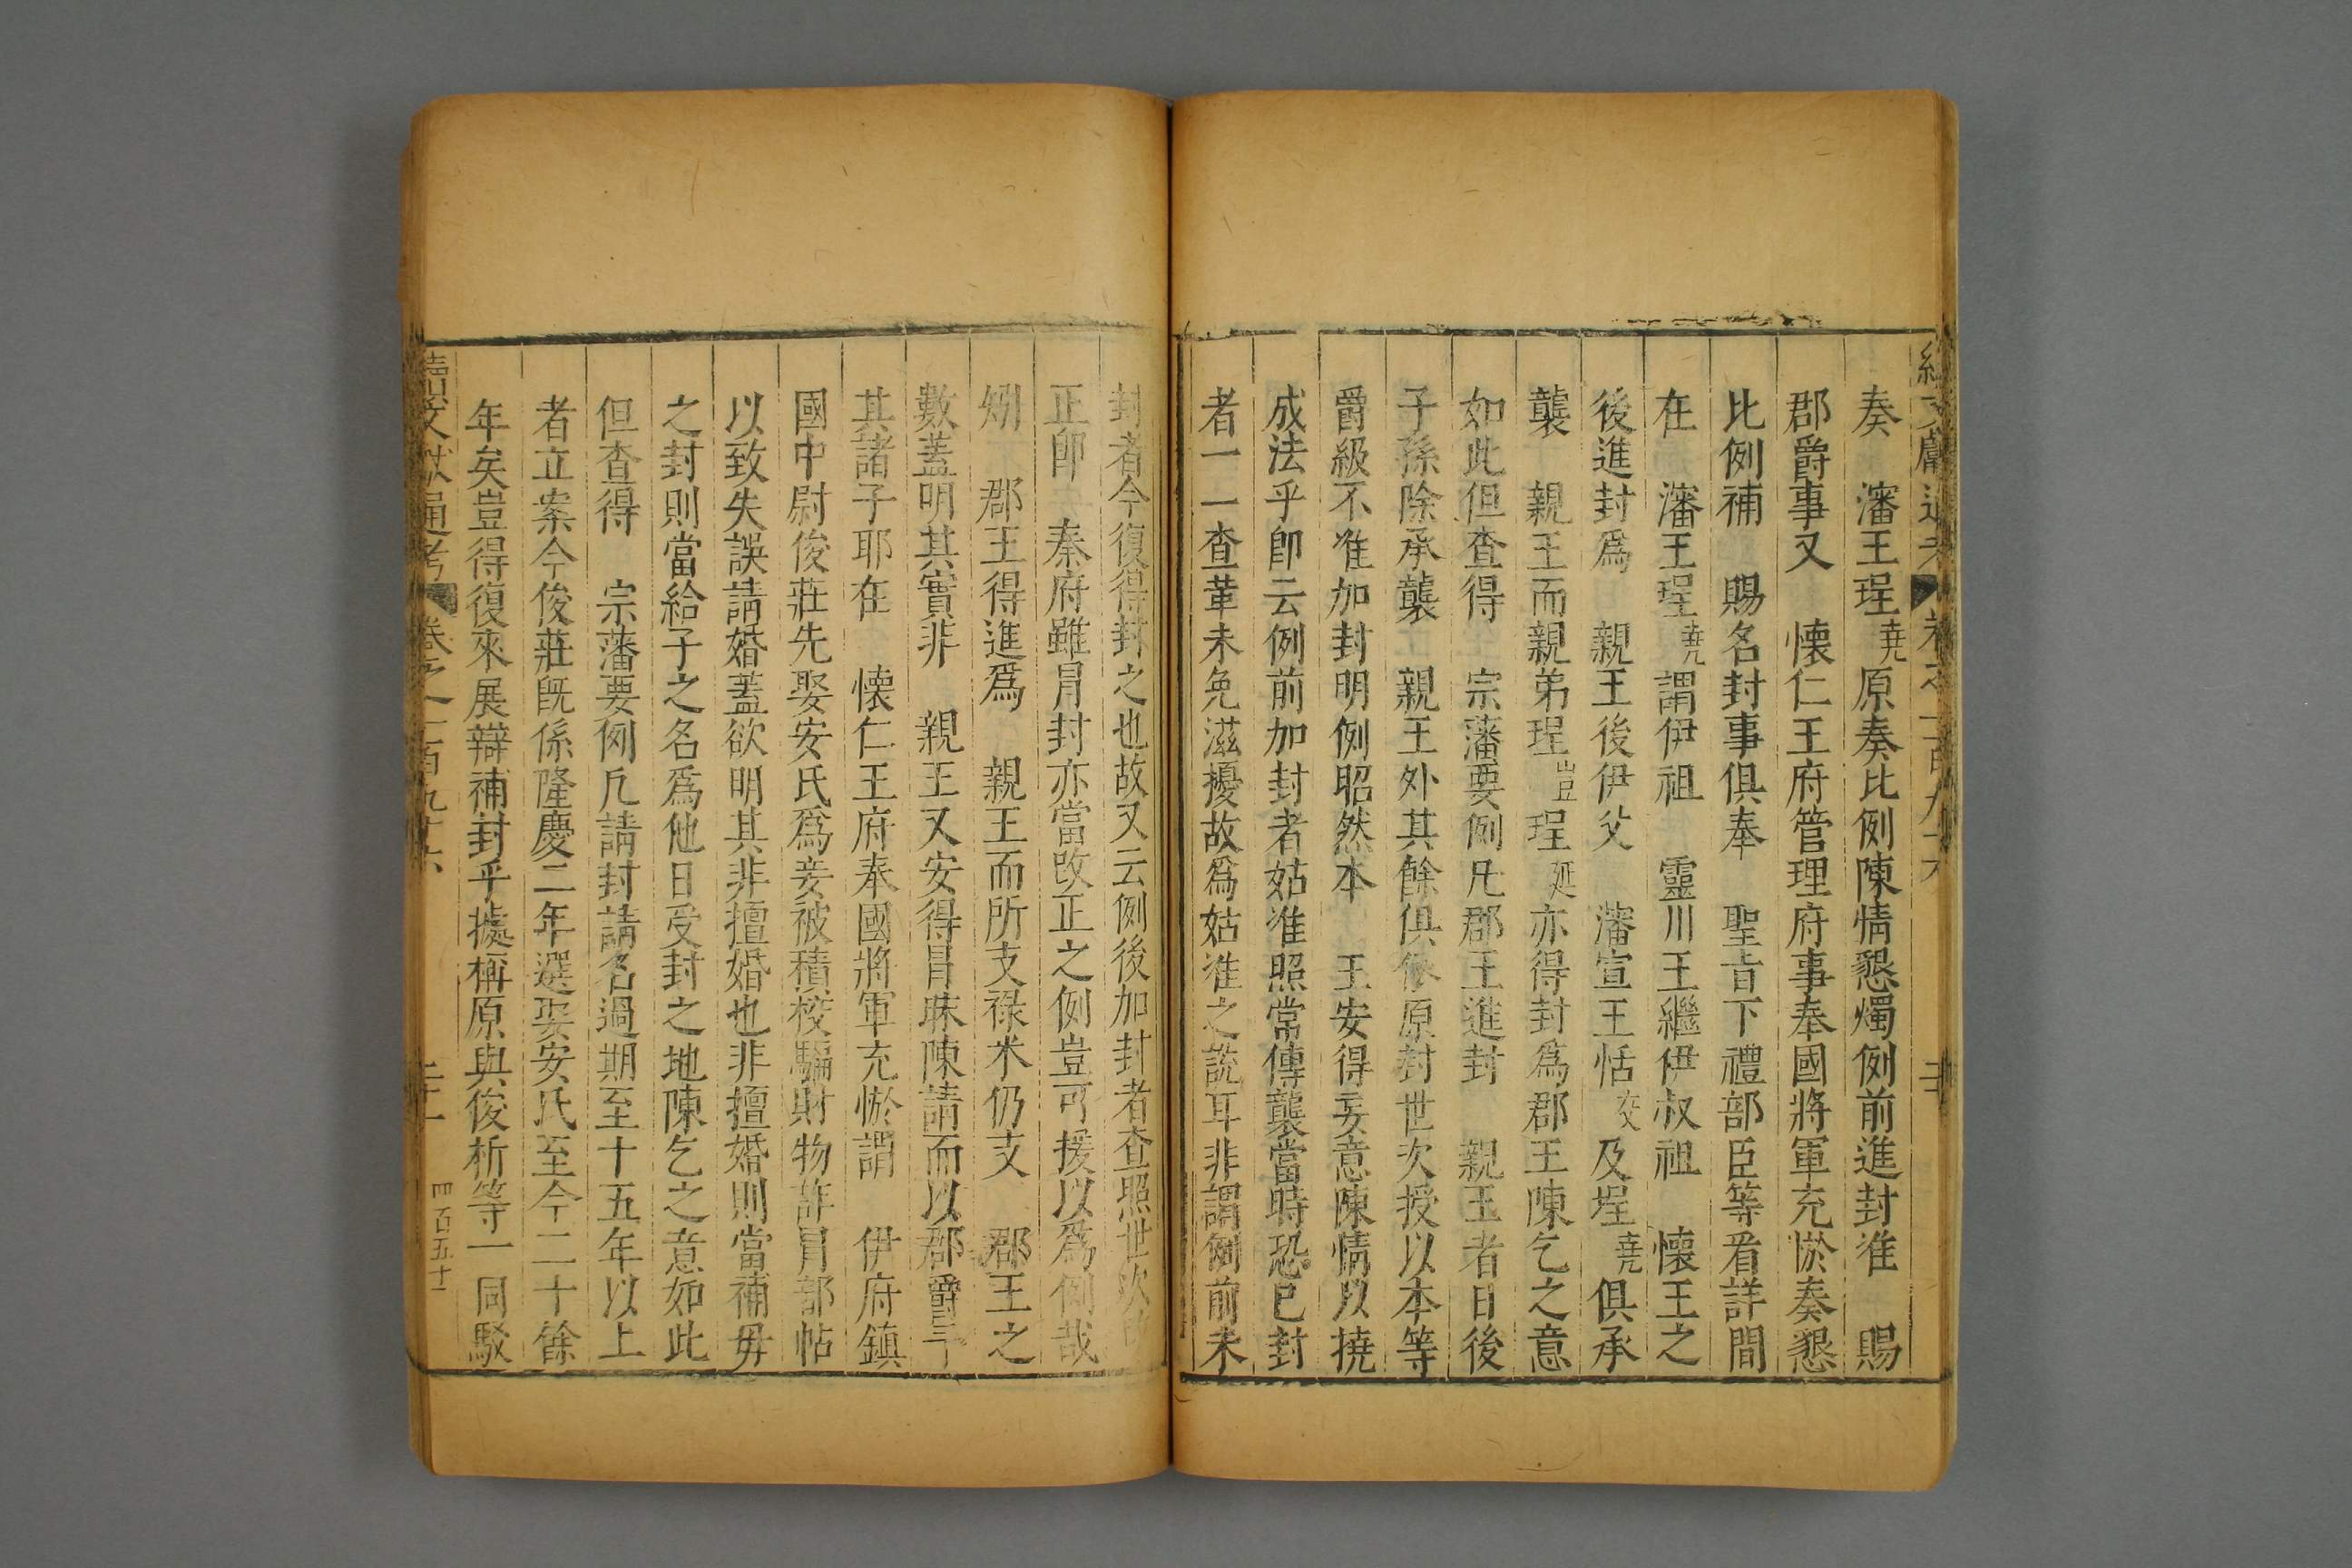 奏　瀋王珵堯原奏比例陳情懇燭例前進封准　賜
郡爵事又　懐仁王府管理府事奉國將軍充悆奏懇
比例補　賜名封事俱奉　聖旨下禮部臣等看詳間
在　瀋王珵堯謂伊祖　靈川王繼伊叔祖　懐王之
後進封爲　親王後伊父　瀋宣王恬及埕堯俱承
襲　親王而親弟珵豈珵延亦得封爲郡王陳乞之意
如此但查得　宗藩要例凡郡王進封　親王者日後
子孫除承襲　親王外其餘俱依原封世次授以本等
爵級不准加封明例昭然本　王安得妄意陳情以撓
成法乎卽云例前加封者姑准照常傳襲當時恐已封
者一一查革未免滋擾故爲姑准之說耳非謂例前未
封者今復得封之也故又云例後加封者查照世次改
正卽　秦府雖冐封亦當改正之例豈可援以爲例哉
矧　郡王得進爲　親王而所支禄米仍支　郡王之
數蓋明其實非　親王又安得冐昧陳請而以郡爵予
其諸子耶在　懐仁王府奉國將軍充悆謂　伊府鎮
國中尉俊莊先娶安氏爲妾被積校騙財物詐冐部帖
以致失誤請婚蓋欲明其非擅婚也非擅婚則當補毋
之封則當給子之名爲他日受封之地陳乞之意如此
但查得　宗藩要例凡請封請名過期至十五年以上
者立案今俊莊旣係隆慶二年選娶安氏至今二十餘
年矣豈得復來展辯補封乎據稱原與俊析等一同駁
續文獻通考　卷之二百九十六　二十一　四百五十二